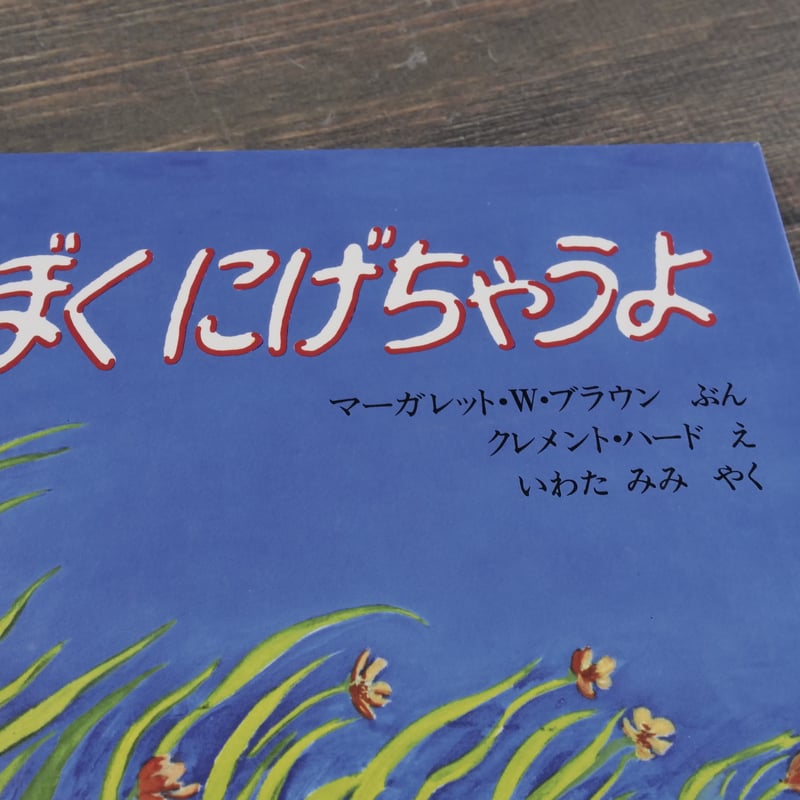 ぼく にげちゃうよ
マーガレット・W・ブラウン ぶん
クレメント・ハード え
いわた みみ やく